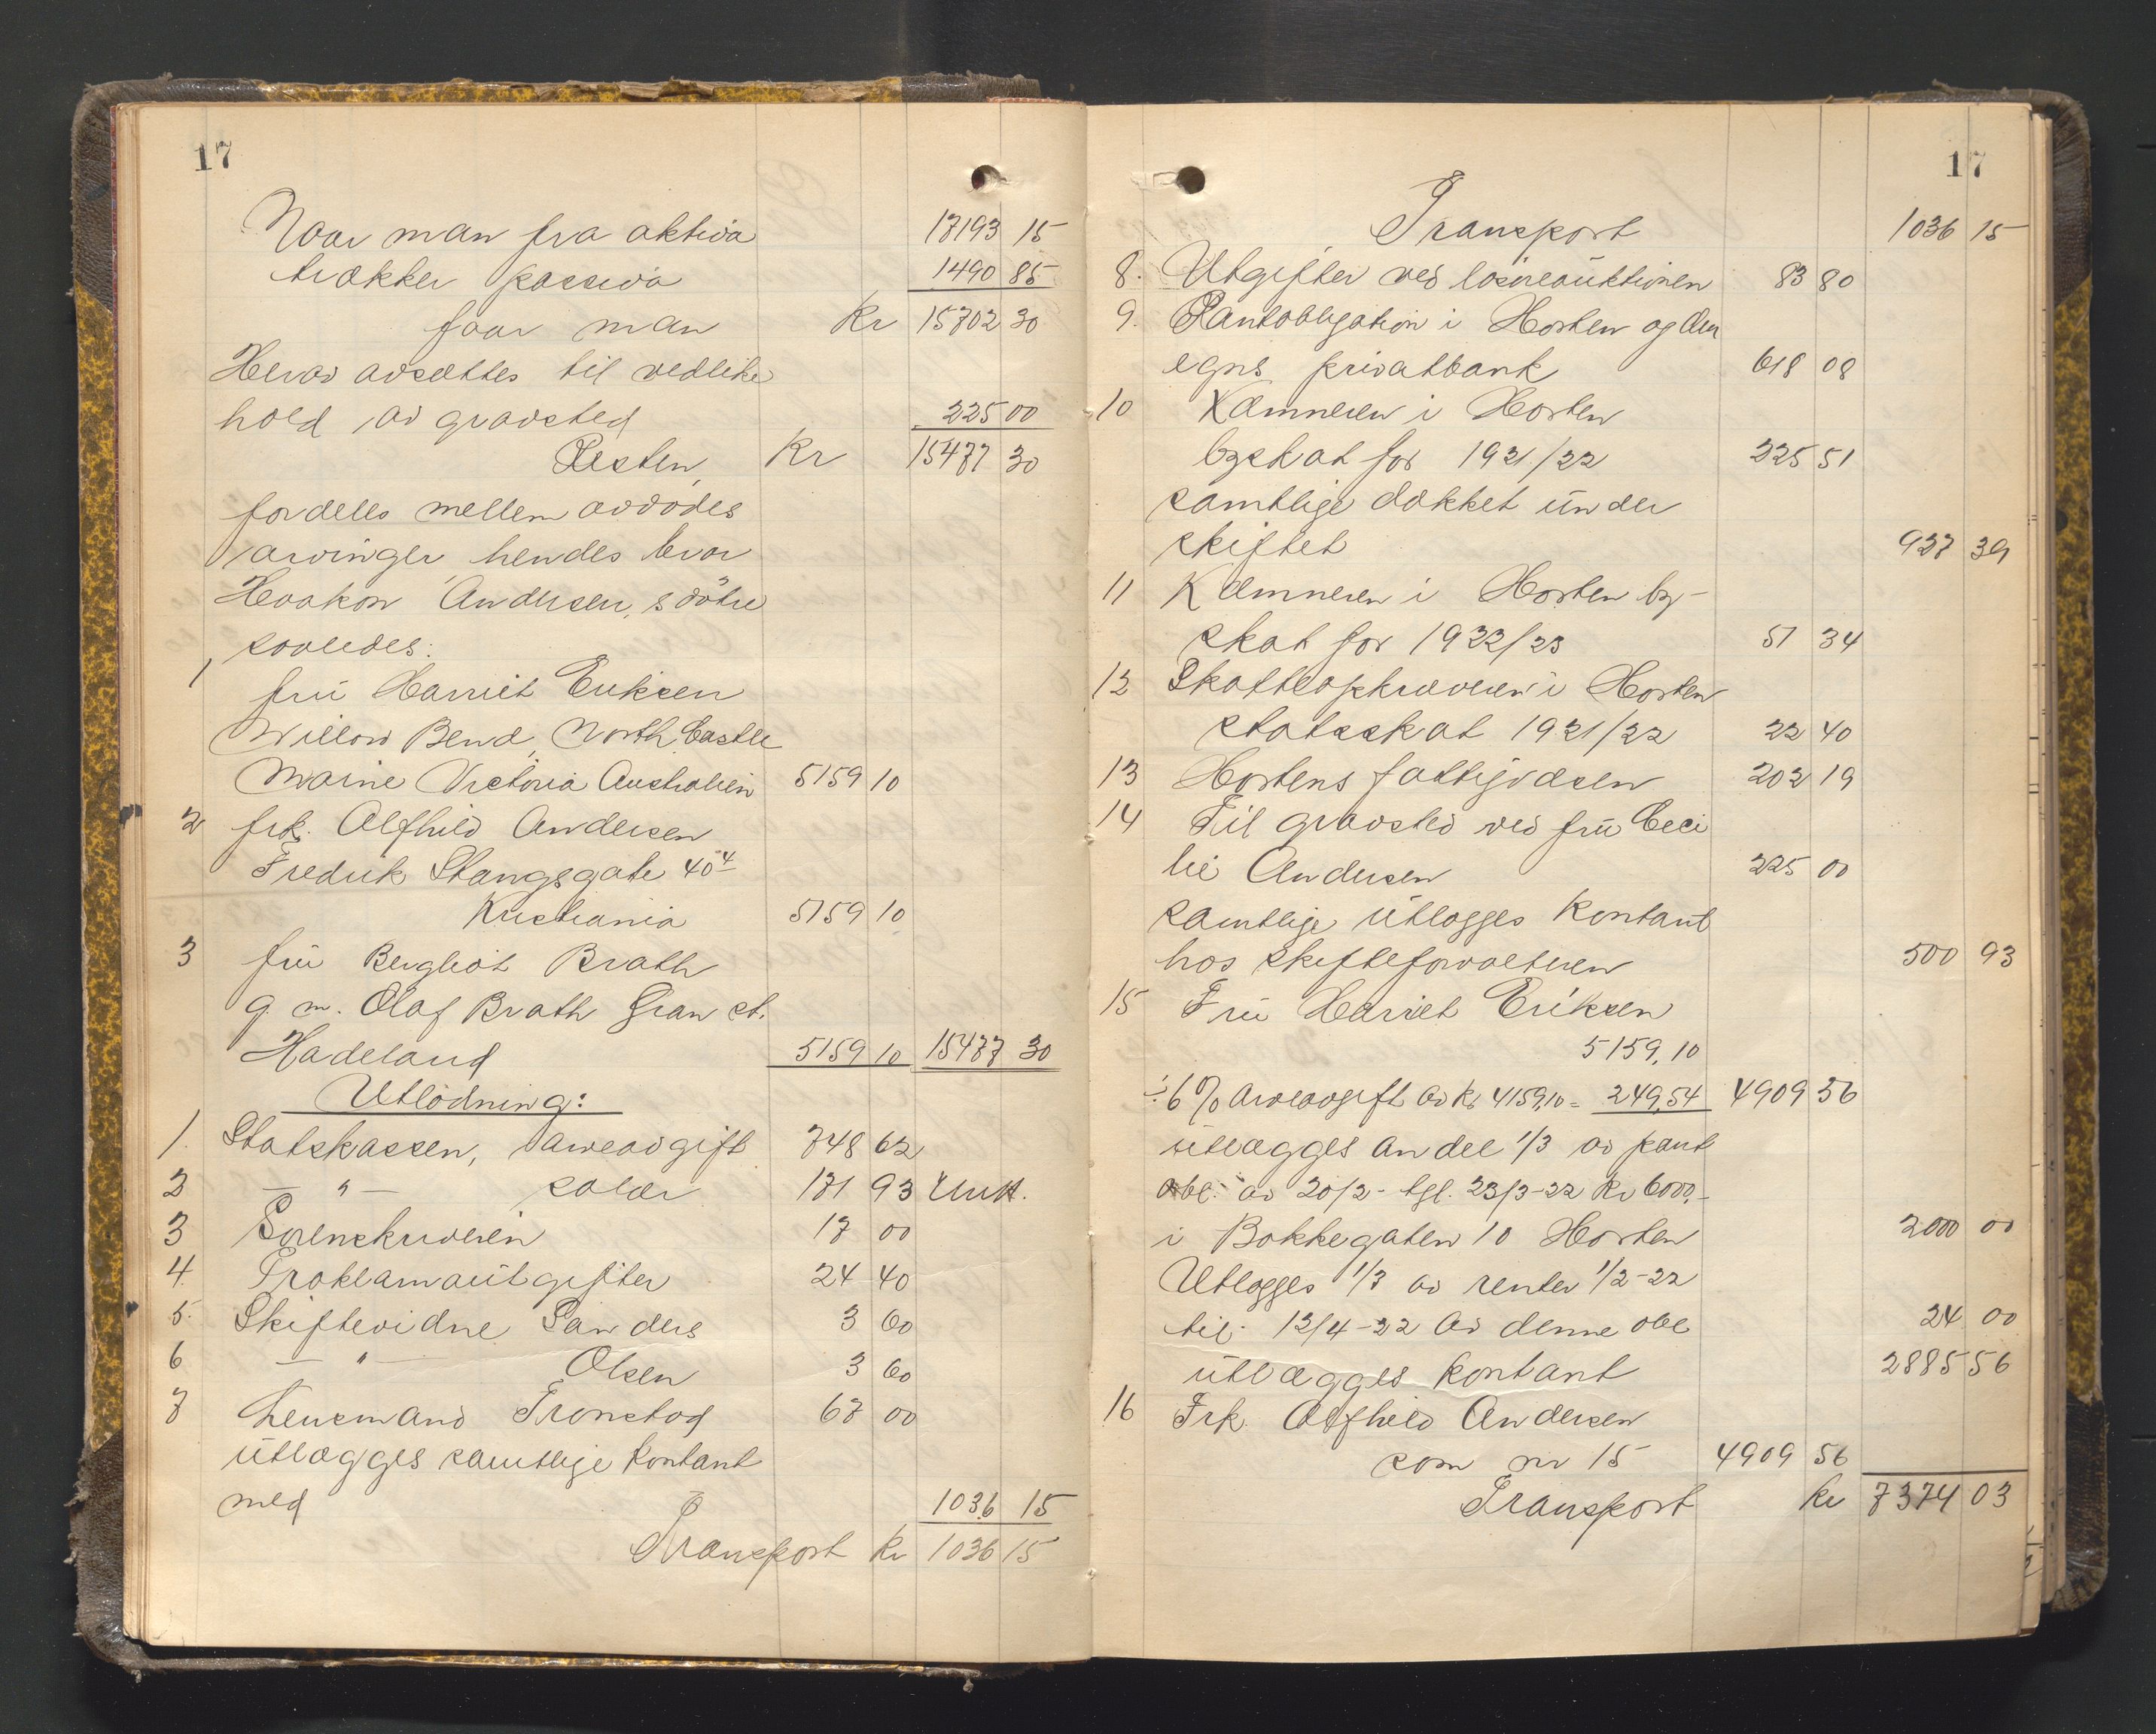 17
Naar man fra aktiva 17193 15
trækker passiva 1490 85
faar man Kr 15702 30
Herav avsættes til vedlike
hold av gravsted 225 00
Resten, Kr 15477 30
fordeles mellem avdødes
arvinger, hendes bror
Haakon Andersens døtre
saaledes:
1 fru Harriet Eriksen
Willow Bend, North Castle
maine Victoria Australien 5159 10
2 frk. Alfhild Andersen
Fredrik Stangsgate 40⁴
Kristiania 5159 10
3 fru Bergliot Brath
g. m. Olaf Brath Gran st.
Hadeland 5159 10 15477 30
Utlodning:
1. Statskassen, arveavgift 748 62
2 — " — salær 171 93
3 Sorenskriveren 17 00
4. Proklamautgifter 24 40
5. Skiftevidne Sanders 3 60
6 — " — Olsen 3 60
7 Lensmand Tronstad 67 00
utlægges samtlige kontant
med 1036 15
Transport kr 1036 15
17
Transport 1036 15
8. Utgifter ved løsøreauktionen 83 80
9. Pantobligation i Horten og om
egns privatbank 618 08
10 Kæmneren i Horten
byskat for 1921/22 225 51
samtlige dækket under
skiftet 927 39
11 Kæmneren i Horten by-
skat for 1922/23 51 34
12 Skatteopkræveren i Horten
statsskat 1921/22 22 40
13 Hortens fattigvæsen 202 19
14 Til gravsted ved fru Ceci
lie Andersen 225 00
samtlige utlægges kontant
hos skifteforvalteren 500 93
15 Fru Harriet Eriksen
5159,10
÷ 6 % arveavgift av kr 4159,10 = 249,54 4909 56
utlægges andel 1/3 av pant
obl. av 20/2 - tgl. 23/3-22 kr 6000,-
i Bakkegaten 10 Horten 2000 00
Utlægges 1/3 av renter 1/2-22
til 12/4-22 av denne obl 24 00
utlægges kontant 2885 56
16 Frk. Alfhild Andersen
som nr 15 4909 56
Transport kr 7374 03